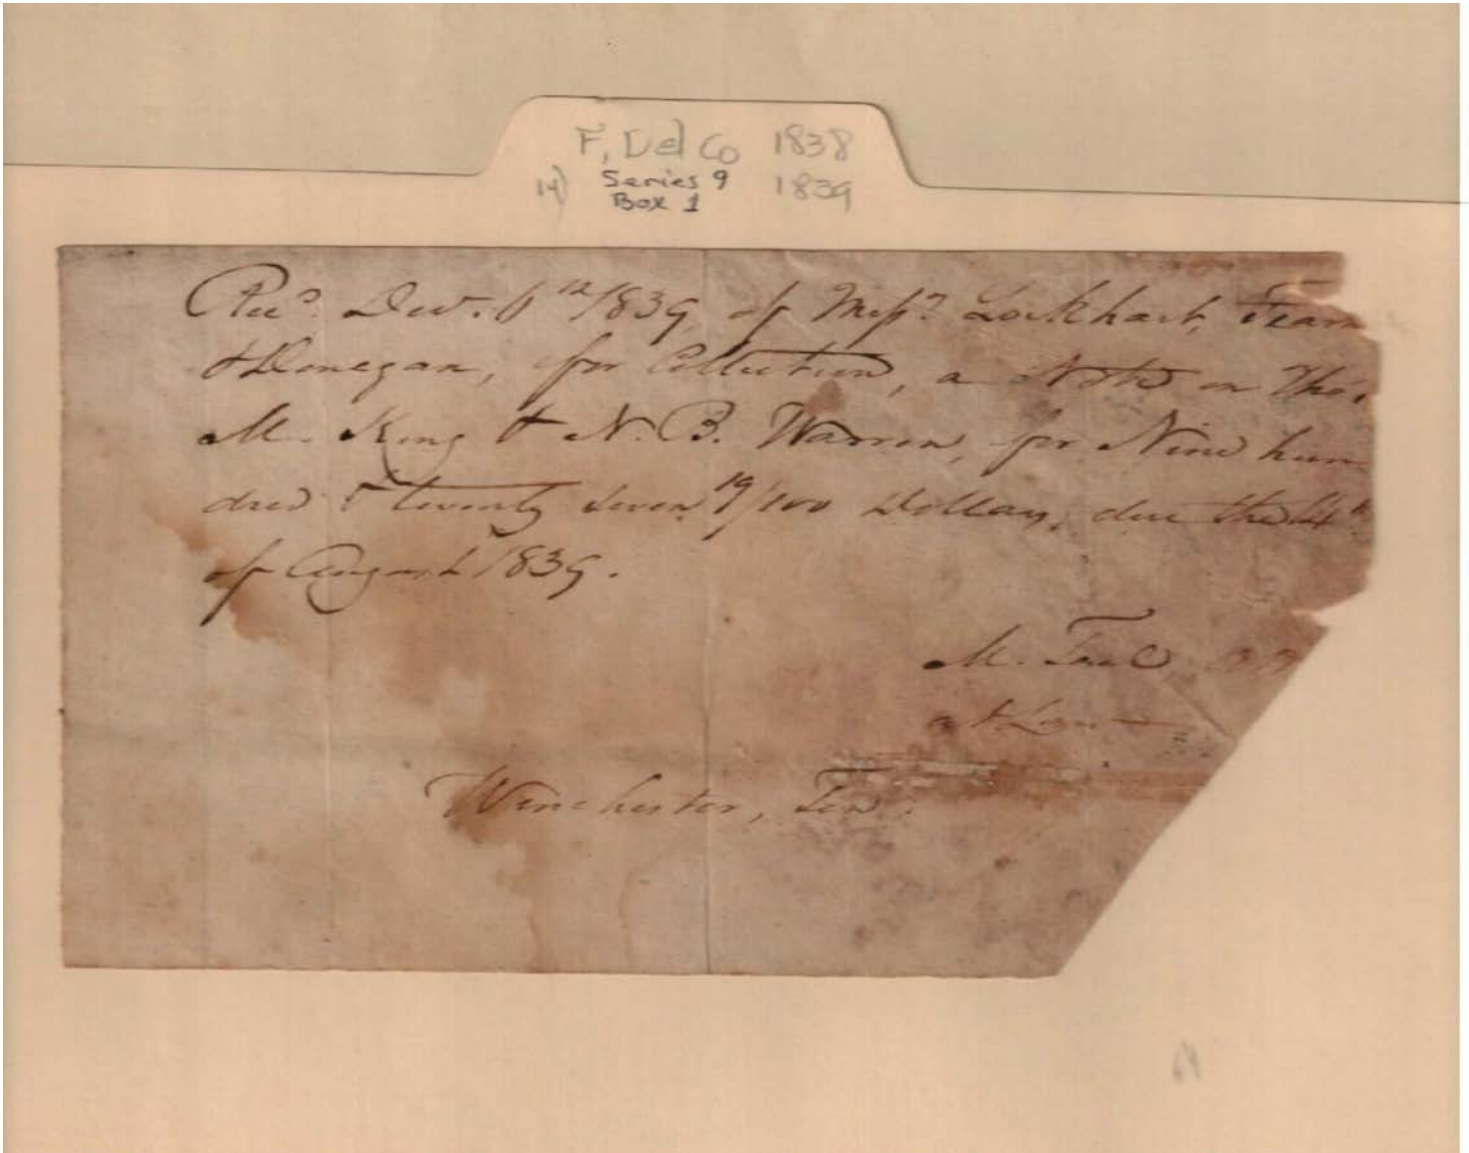 F, D & Co 1838
14) Series 9 1839
Box 1
Recd. Decr. 6th 1839, of Messrs. Lockhart, Fearn
& Donegan, for Collection, a Note on Tho.
M. King & N. B. Warren, for Nine hun
dred & twenty Seven 19/100 Dollars, due the 4th
of August 1839.
M.
at Law
Winchester, Ten.